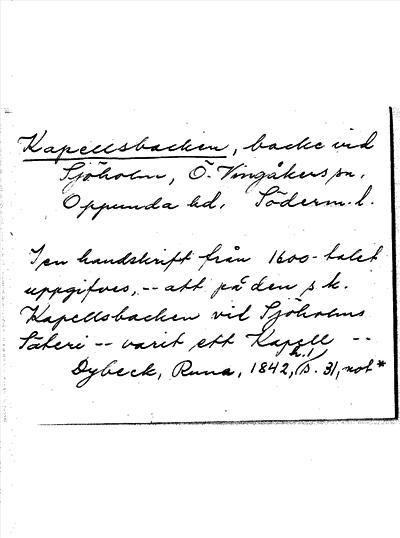 Kapellsbacken, backe vid
Sjöholm, Ö. Vingåkers sn,
Oppunda hd. Söderm. l.
I en handskrift från 1600-talet
uppgifves, -- att på den s k.
Kapellsbacken vid Sjöholms
Säteri -- varit ett Kapell --
Dybeck, Runa, 1842, h. 1, s. 31, not *